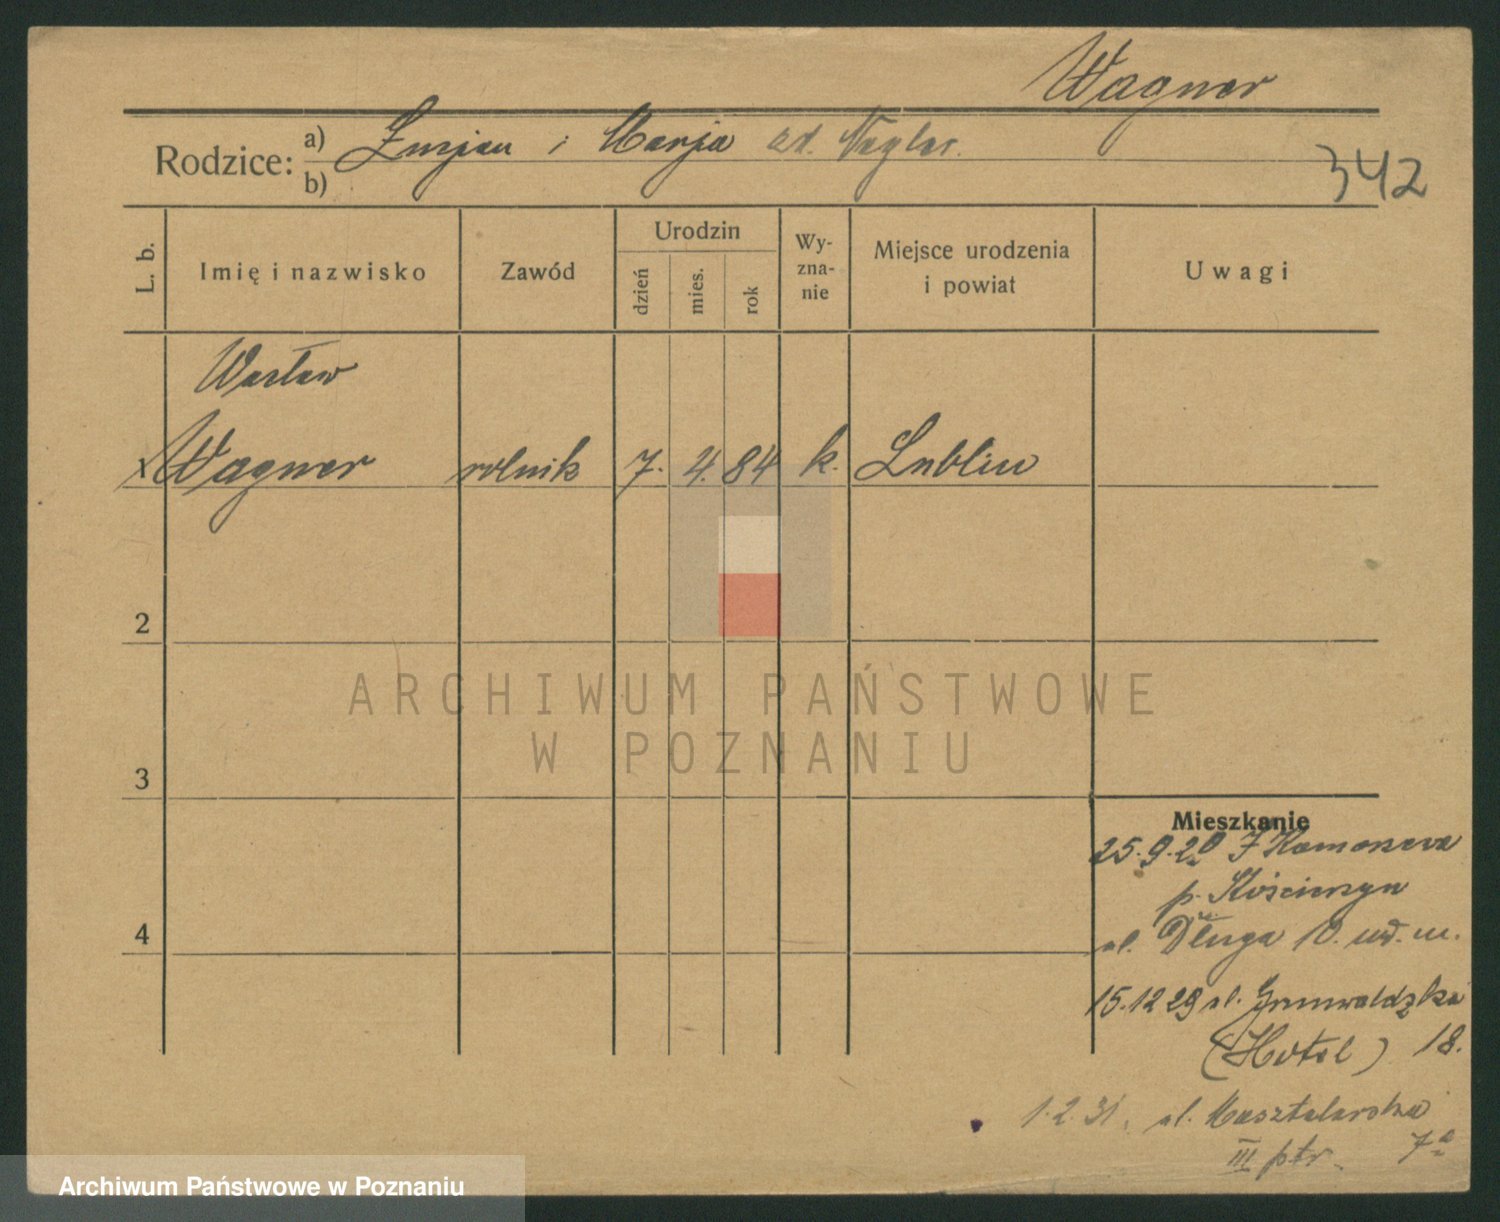 Wagner
Rodzice: a) Lucjan i Marja zd. Negler.
b)
342
L. b. Imię i nazwisko Zawód Urodzin dzień mies. rok Wy-zna-nie Miejsce urodzenia i powiat Uwagi
Wacław
1 Wagner rolnik 7. 4. 84 k. Lublin
2
ARCHIWUM PAŃSTWOWE
W POZNANIU
3
4
Mieszkanie
25.9.29 z
p. Kościerzyn
ul. Długa 10.
15.12 29 ul. Grunwaldzka
(Hotel) 18.
1.2.31. ul. Masztalarska
III ptr. 7a
Archiwum Państwowe w Poznaniu